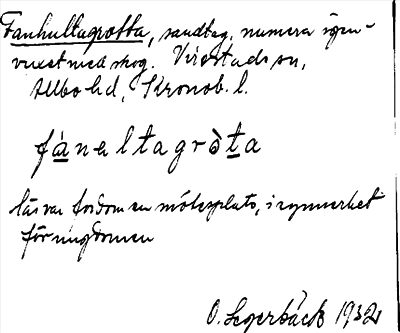 Fanhultagrotta, sandtag, numera igen-
vuxet med skog. Virestads sn,
Allbo hd, Kronob. l.
fánaltagròta
lär va fordom en mötesplats, i synnerhet
för ungdomen
O. Segerbäck 1932